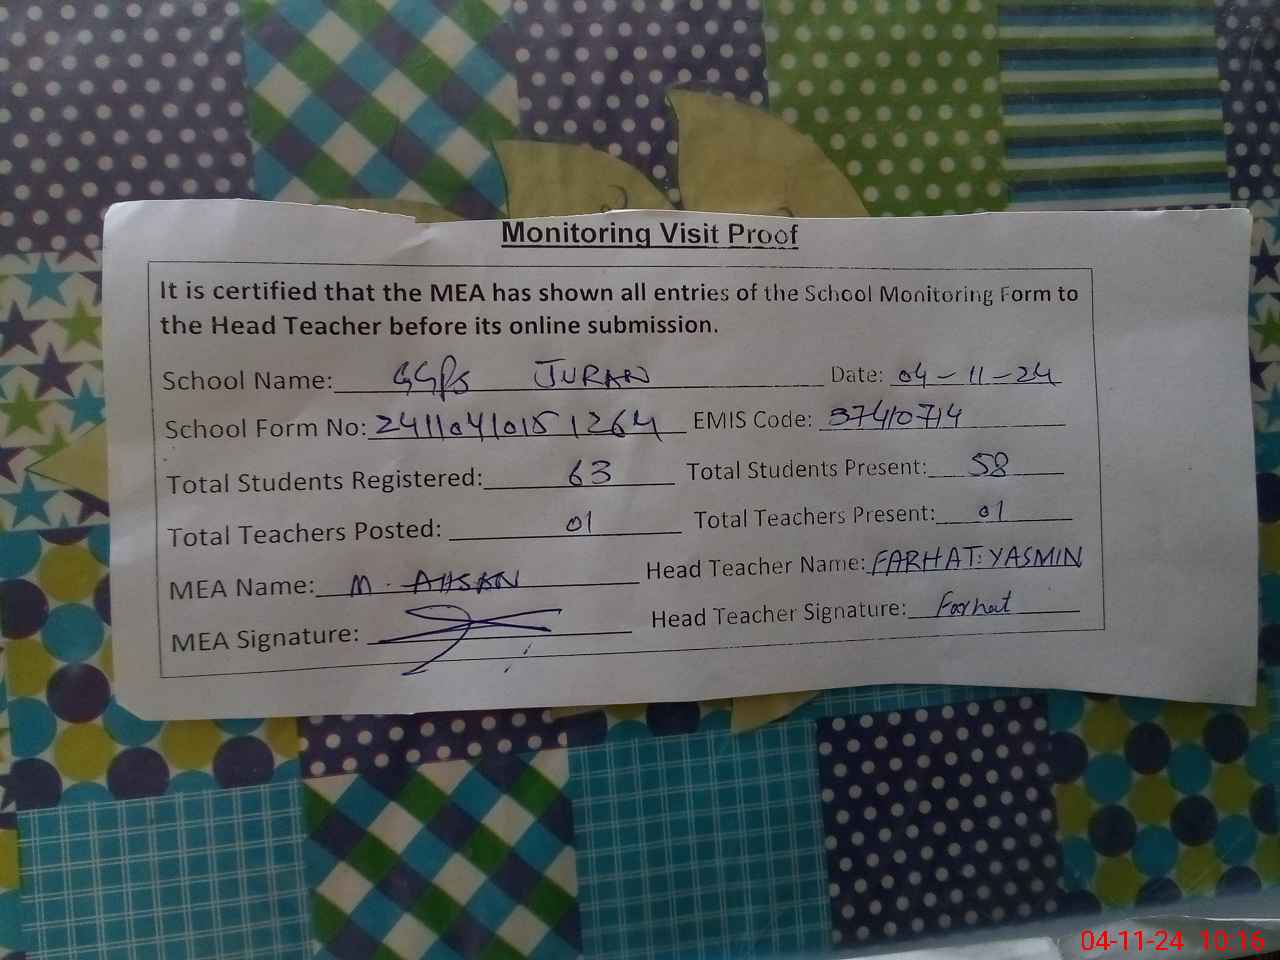 Monitoring Visit Proof
It is certified that the MEA has shown all entries of the School Monitoring Form to
the Head Teacher before its online submission.
School Name: GGPS JURAN Date: 04-11-24
School Form No: 24110410151264 EMIS Code: 37410714
Total Students Registered: 63 Total Students Present: 58
Total Teachers Posted: 01 Total Teachers Present: 01
MEA Name: M. AHSAN Head Teacher Name: FARHAT YASMIN
MEA Signature: Head Teacher Signature: Farhat
04-11-24 10:16